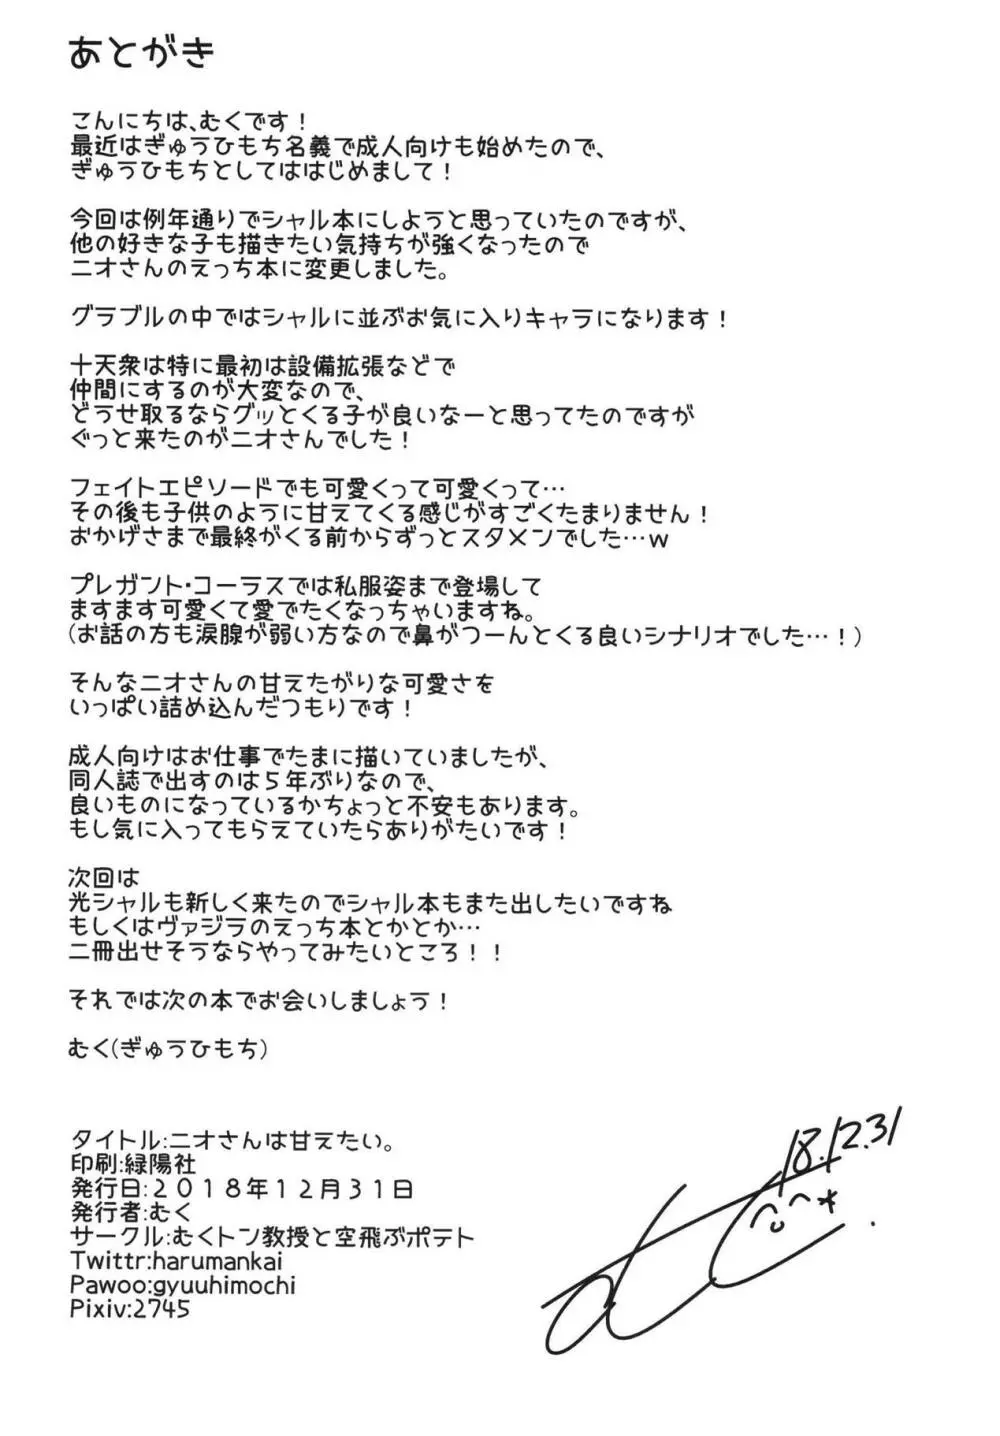 あとがき
こんにちは、むくです！
最近はぎゅうひもち名義で成人向けも始めたので、
ぎゅうひもちとしてははじめまして！
今回は例年通りでシャル本にしようと思っていたのですが、
他の好きな子も描きたい気持ちが強くなったので
ニオさんのえっち本に変更しました。
グラブルの中ではシャルに並ぶお気に入りキャラになります！
十天衆は特に最初は設備拡張などで
仲間にするのが大変なので、
どうせ取るならグッとくる子が良いなーと思ってたのですが
ぐっと来たのがニオさんでした！
フェイトエピソードでも可愛くって可愛くって…
その後も子供のように甘えてくる感じがすごくたまりません！
おかげさまで最終がくる前からずっとスタメンでした…w
プレガント・コーラスでは私服姿まで登場して
ますます可愛くて愛でたくなっちゃいますね。
(お話の方も涙腺が弱い方なので鼻がつーんとくる良いシナリオでした…！)
そんなニオさんの甘えたがりな可愛さを
いっぱい詰め込んだつもりです！
成人向けはお仕事でたまに描いていましたが、
同人誌で出すのは５年ぶりなので、
良いものになっているかちょっと不安もあります。
もし気に入ってもらえていたらありがたいです！
次回は
光シャルも新しく来たのでシャル本もまた出したいですね
もしくはヴァジラのえっち本とかとか…
二冊出せそうならやってみたいところ！！
それでは次の本でお会いしましょう！
むく(ぎゅうひもち)
タイトル:ニオさんは甘えたい。
印刷:緑陽社
発行日:２０１８年１２月３１日
発行者:むく
サークル:むくトン教授と空飛ぶポテト
Twittr:harumankai
Pawoo:gyuuhimochi
Pixiv:2745
18.12.31